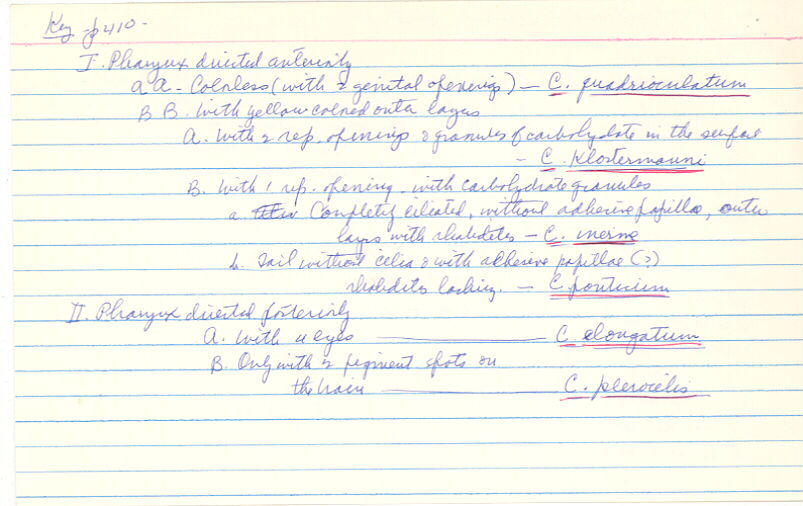 Key - p 410 -
I. Pharynx directed anteriorly
a A - Colorless (with 2 genital openings) - C. quadrioculatum
B B. With yellow colored outer layers
A. With 2 rep. openings & granules of carbohydrate in the surface
- C. Klostermanni
B. With 1 rep. opening - with carbohydrate granules
a. Completely ciliated, without adhesive papillae, outer
layers with rhabdites - C. inerme
b. Tail without cilia & with adhesive papillae (?)
rhabdites lacking. - C. ponticum
II. Pharynx directed posteriorly
A. With 4 eyes C. elongatum
B. Only with 2 pigment spots on
the brain C. plerocelis